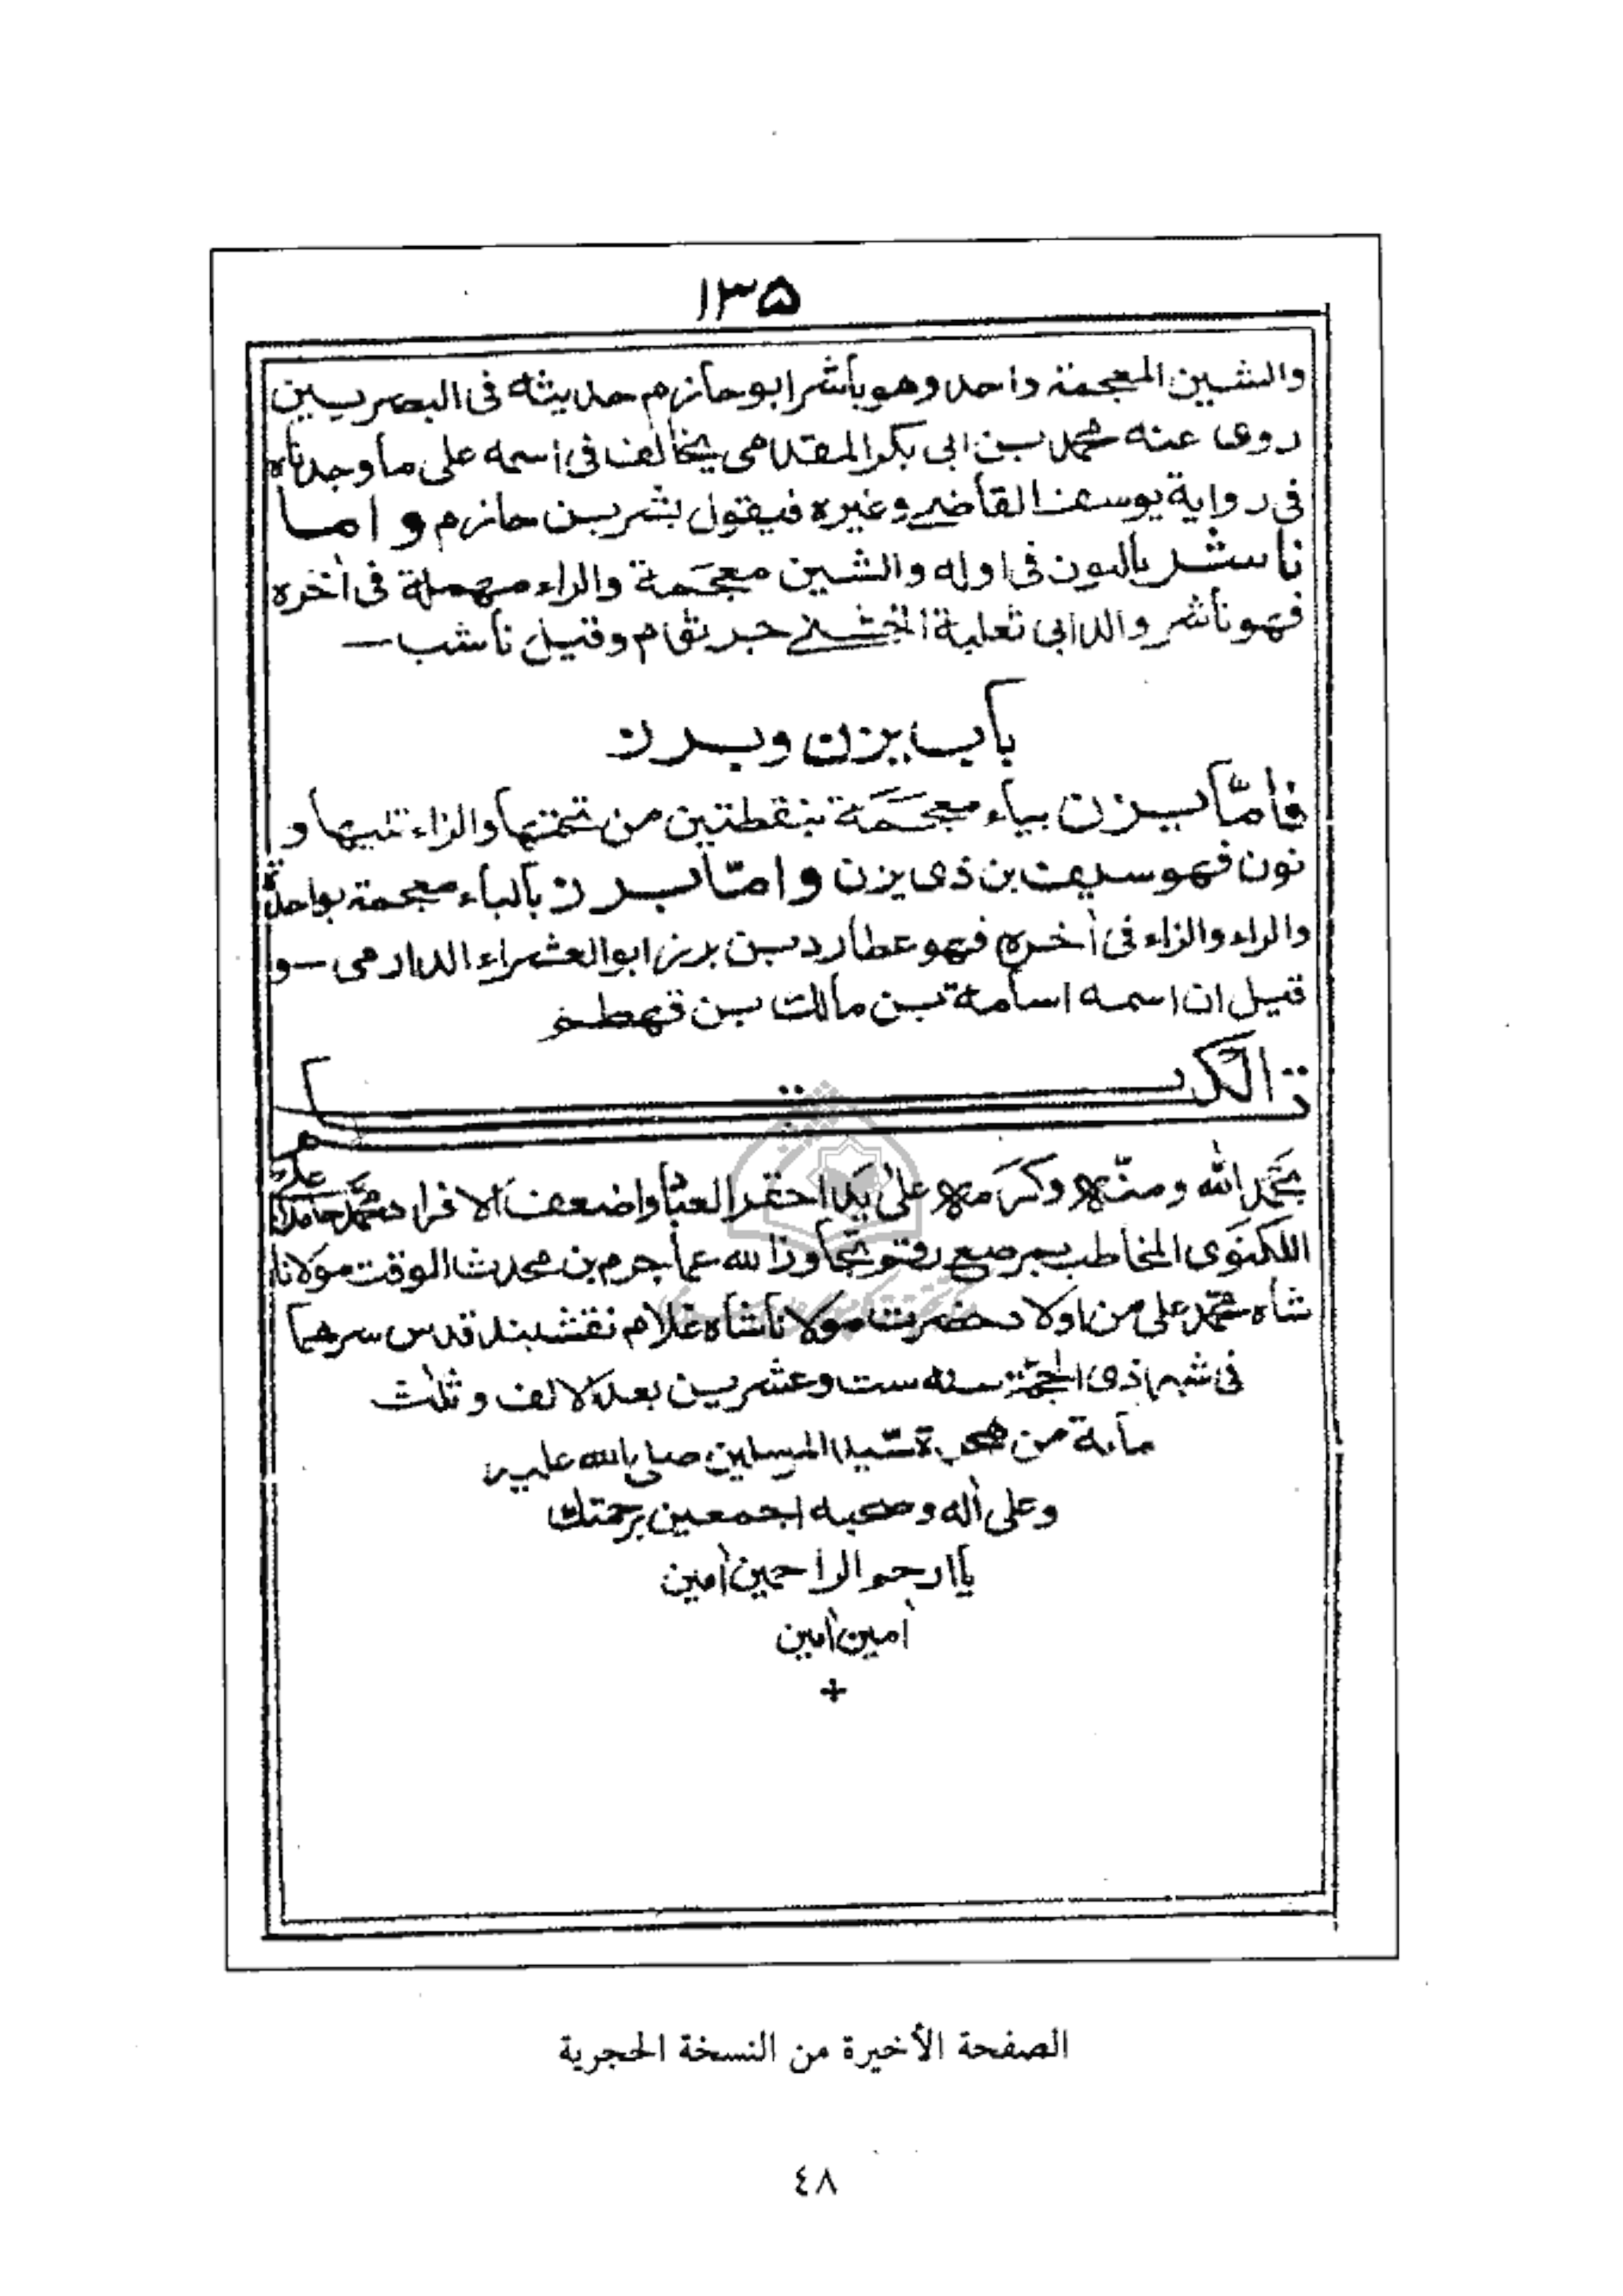 ١٣٥
والشين المعجمة واحد وهو باشر ابو حازم حديثه فى البصريين
روى عنه محمد بن ابى بكر المقدمى يخالف فى اسمه على ما وجدناه
فى رواية يوسف القاضى وغيره فيقول بشر بن حازم واما
ناشر بالنون فى اوله والشين معجمة والراء مهملة فى أخره
فهو ناشر والد ابى ثعلبة الخشنى جرثام وقيل ناشب
باب يزن وبرز
فأمّا يزن بياء معجمة بنقطتين من تحتها والزاء تليها و
نون فهو سيف بن ذى يزن وامّا برز بالباء معجمة بواحدة
والراء والزاء فى أخره فهو عطارد بن برز ابو العشراء الدارمى و
قيل ان اسمه اسامة بن مالك بن قهطم
تم الكتاب
بحمد الله ومنّه وكرمه على يد احقر العباد واضعف الافراد محمد حامد على
اللكنوى المخاطب بمرصع رقم تجاوز الله عما جرم بن محدث الوقت مولانا
شاه محمد على من اولاد حضرت مولانا شاه غلام نقشبند قدس سرهما
فى شهر ذى الحجة سنه ست وعشرين بعد الالف وثلث
مأية من هجرة سيد المرسلين صلى الله عليه
وعلى أله وصحبه اجمعين برحمتك
يا ارحم الراحمين أمين
أمين أمين
+
الصفحة الأخيرة من النسخة الحجرية
٤٨